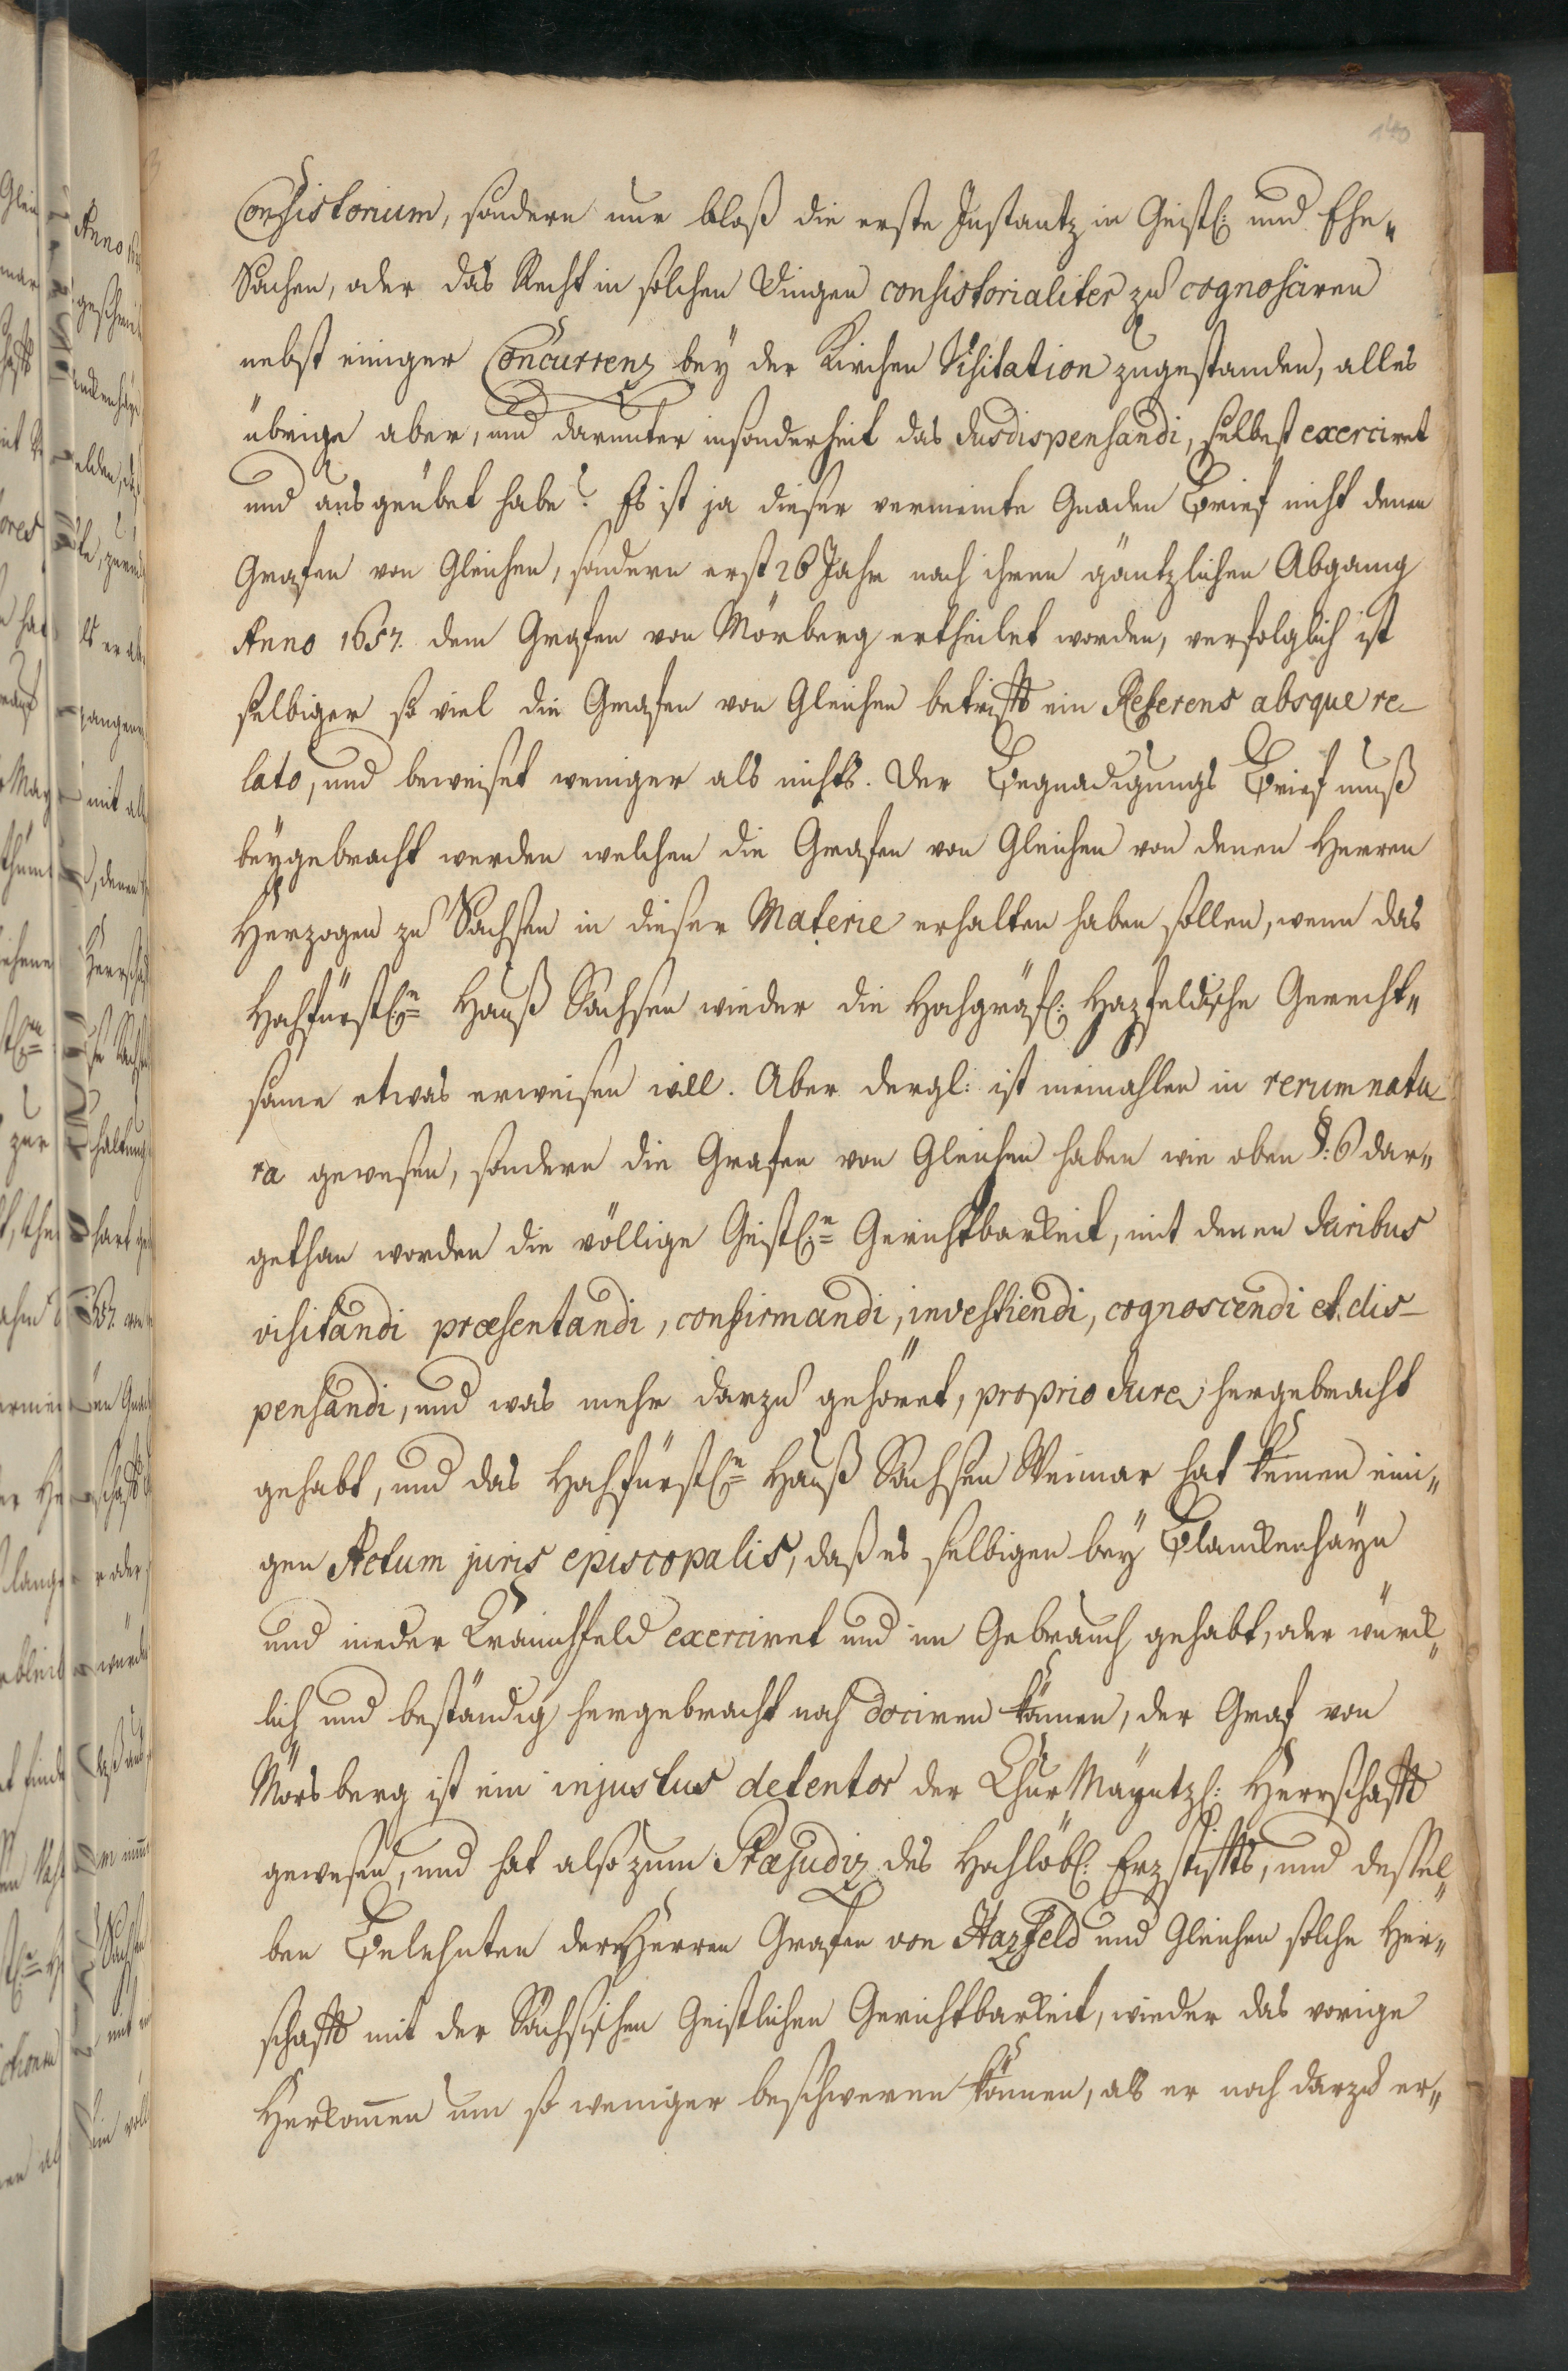 140
Consistorium, sondern nur bloß die erste Instantz in Geistl: und Ehe„
Sachen, oder das Recht in solchen Dingen consistorialiter zu cognosciren
nebst einiger Concurrenz bey der Kirchen Visitation zugestanden, alles
übrige aber, und darunter insonderheit das Jus dispensandi, selbest exerciret
und ausgeübet habe? Es ist ja dieser vermeinte Gnaden Brief nicht denen
Grafen von Gleichen, sondern erst 26 Jahr nach ihren gäntzlichen Abgang
Anno 1657. dem Grafen von Mörberg ertheilet worden, verfolglich ist
selbiger so viel die Grafen von Gleichen betrifft ein Referens absque re-
lato, und beweiset weniger als nichts. Der Begnadigungs Brief muß
beygebracht werden welchen die Grafen von Gleichen von denen Herren
Herzogen zu Sachsen in dieser Materie erhalten haben sollen, wenn das
Hochfürstl:n Hauß Sachsen wieder die Hochgräfl: Hazfeldische Gerecht„
same etwas erweisen will. Aber dergl: ist niemahlen in rerum natu
ra gewesen, sondern die Grafen von Gleichen haben wie oben §: 6 dar„
gethan worden die völlige Geistl:n Gerichtbarkeit, mit denen Juribus
visitandi præsentandi, confirmandi, investiendi, cognoscendi et dis-
pensandi, und was mehr darzu gehöret, proprio Jure, hergebracht
gehabt, und das Hochfürstl:n Hauß Sachsen Weimar hat keinen eini„
gen Actum juris episcopalis, daß es selbigen bey Blanckenhayn
und nieder Cranichfeld exerciret und im Gebrauch gehabt, oder würck„
lich und beständig hergebracht noch dociren können, der Graf von
Mörsberg ist ein injustus detentor der Chur Mayntzl: Herrschafft
gewesen, und hat also zum Præjudiz des Hochlöbl: Erzstiffts, und dessel„
ben Belehnten derer Herren Grafen von Hazfeld und Gleichen solche Herr„
schafft mit der Sächsischen Geistlichen Gerichtbarkeit, wieder das vorige
Herkommen um so weniger beschweren können, als er noch darzu er„